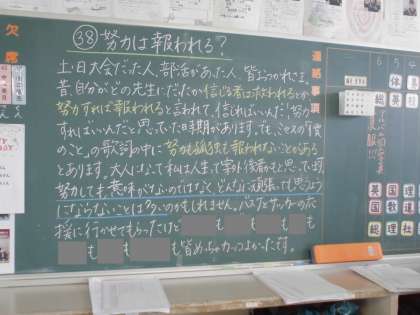 ㊳努力は報われる？
土日大会だった人、部活があった人、皆おつかれさま。
昔、自分がどの先生にだったか信じる者は救われるとか
努力すれば報われると言われて、信じればいいんだ！努力
すればいいんだと思っていた時期があります。でも、ミセスの「僕
のこと」の歌詞の中に努力も孤独も報われないことがある
とあります。大人になって私は人生って案外後者かもと思っています。
努力しても意味がないのではなくて、どんなに頑張っても思うよう
にならないことは多いのかもしれません。バスケとサッカーの応
援に行かせてもらったけど
も も も も
も も も 皆めっちゃカッコよかったです。
欠席
連絡事項
6 5 4
体 英 総
美 英 国 英
英 国 数
国 理 理
総 社